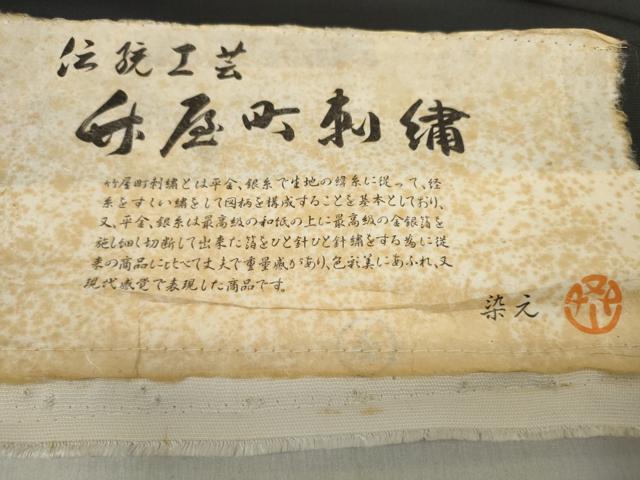 伝統工芸
竹屋町刺繍
竹屋町刺繍とは平金、銀糸で生地の緯糸に従って、経
糸をすくい繍をして図柄を構成することを基本としており、
又、平金、銀糸は最高級の和紙の上に最高級の金銀箔を
施し細く切断して出来た箔をひと針ひと針繍をする為に従
来の商品に比べて丈夫で重量感があり、色彩美にあふれ、又
現代感覚で表現した商品です。
染元